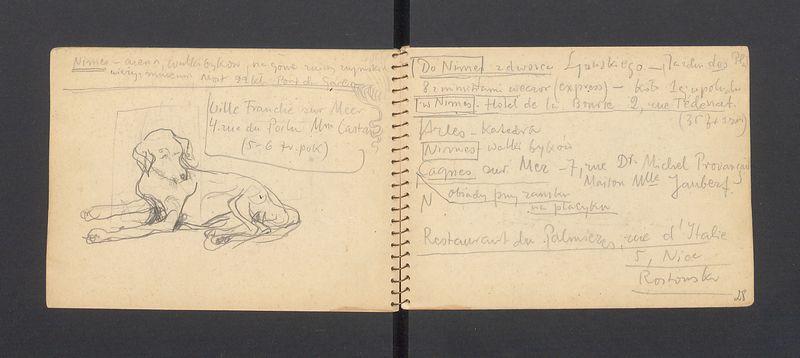 Nimes – arena, walki byków, na górze ruiny rzymskie
Most 22 kl. Pont du Gard
Ville Franche sur Meer
4. rue du Portu Mm
(5–6 fr. pok)
Do Nimes z dworca Lyońskiego – Jardin des Pl
8 z minutami wieczór (express) – koło 1ej w połudn
w Nimes. Hotel de la Bourse 2, rue Pederiat.
Arles – katedra
Nimes walki byków
Cagnes sur Mer – 7, rue Dr. Michel Provençau
Maison Mlle Jaubert
N obiady przy zamku
na placyku
Restaurant du Palmieres, rue d'Italie
5, Nice
Rostowska
28